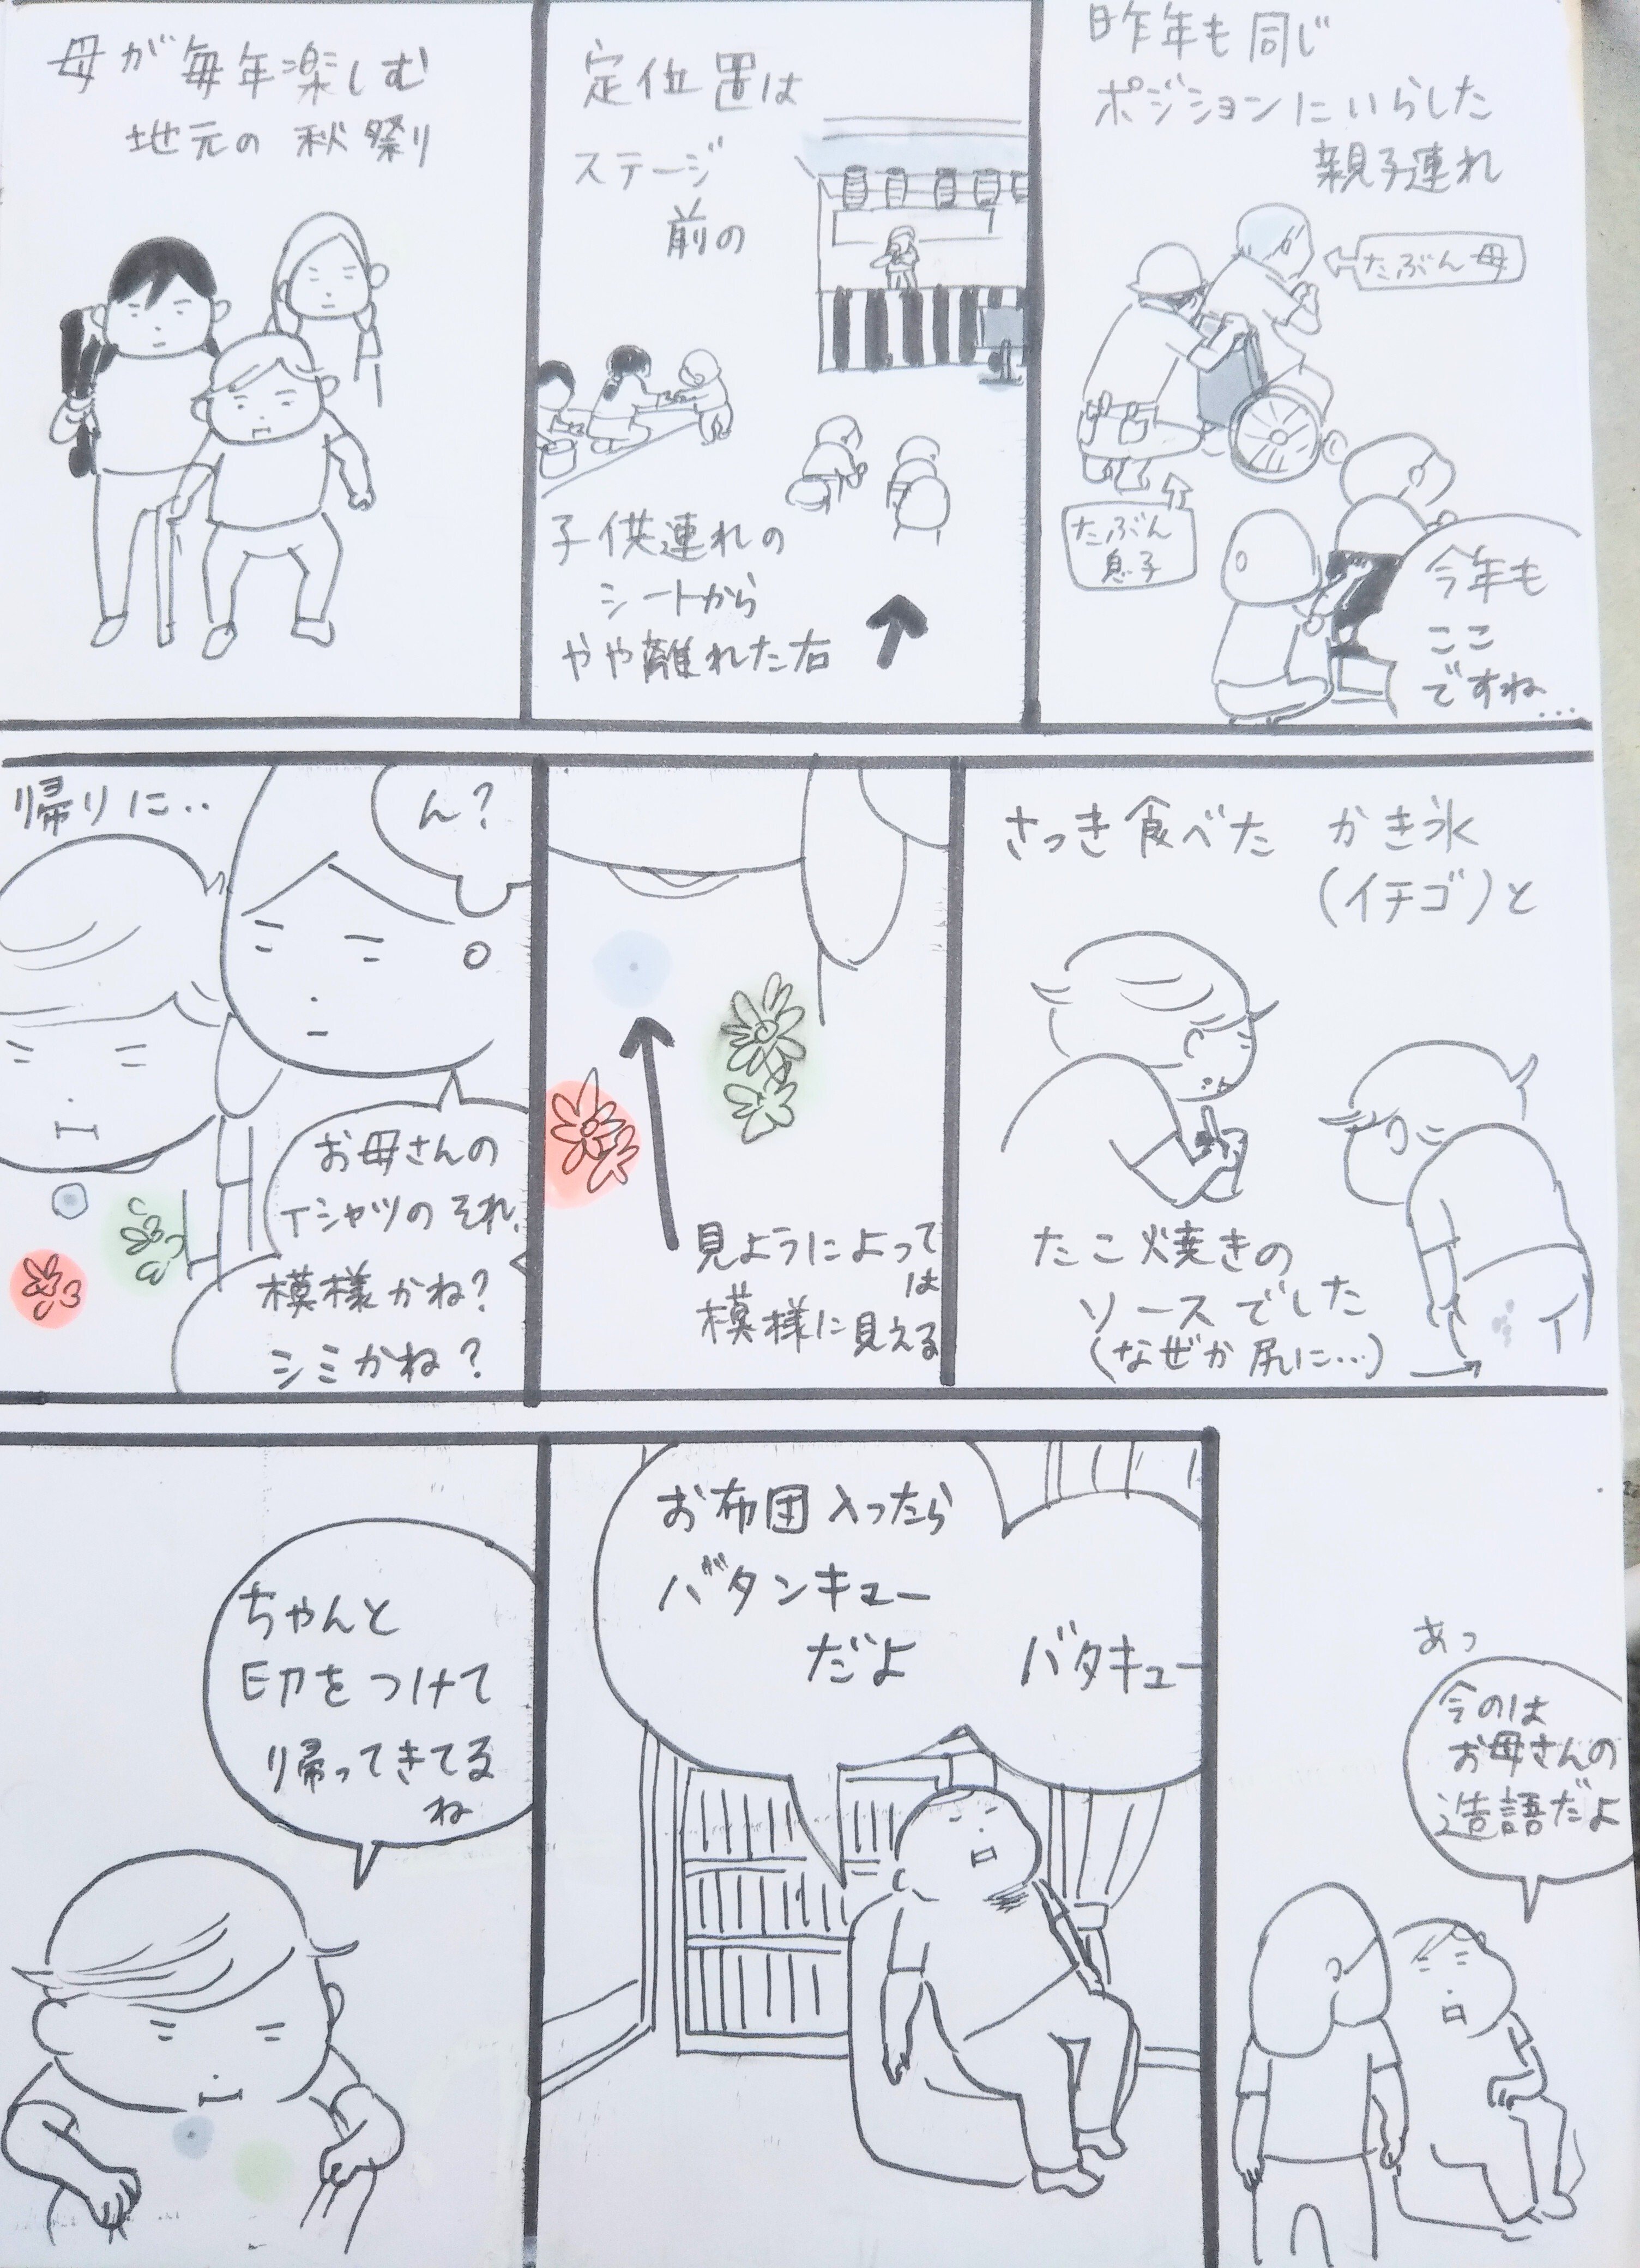 母が毎年楽しむ
地元の秋祭り
定位置は
ステージ
前の
子供連れの
シートから
やや離れた右
昨年も同じ
ポジションにいらした
親子連れ
たぶん母
たぶん
息子
今年も
ここ
ですね…
帰りに‥
ん?
お母さんの
Tシャツのそれ、
模様かね?
シミかね?
見ようによって
は
模様に見える
さっき食べた かき氷
(イチゴ)と
たこ焼きの
ソースでした
(なぜか尻に…)
ちゃんと
印をつけて
帰ってきてる
ね
お布団入ったら
バタンキュー
だよ
バタキュー
あっ
今のは
お母さんの
造語だよ